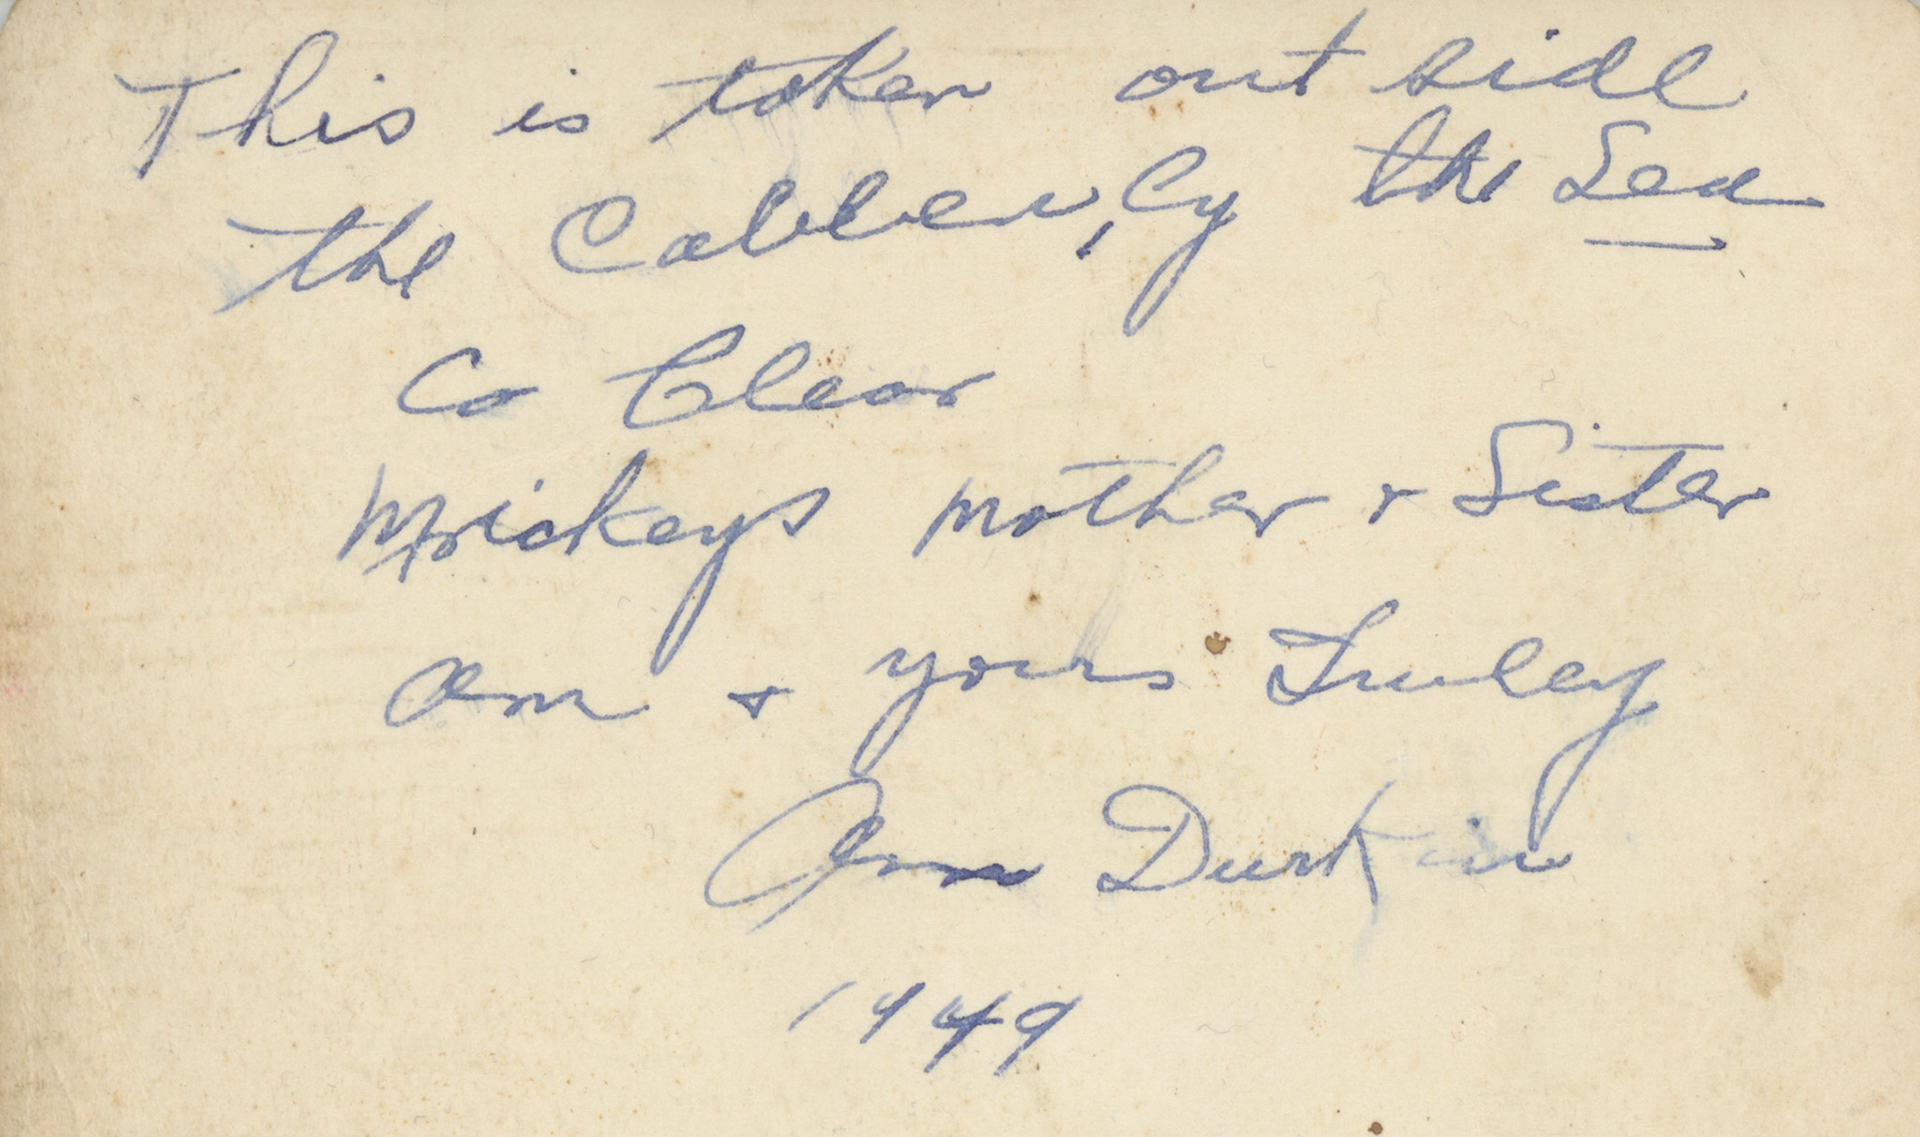 This is taken out side
the Cabben, by the Sea
Co Clear
Mickeys mother & Sister
Ann & yours Truley
Ann Durkin
1949